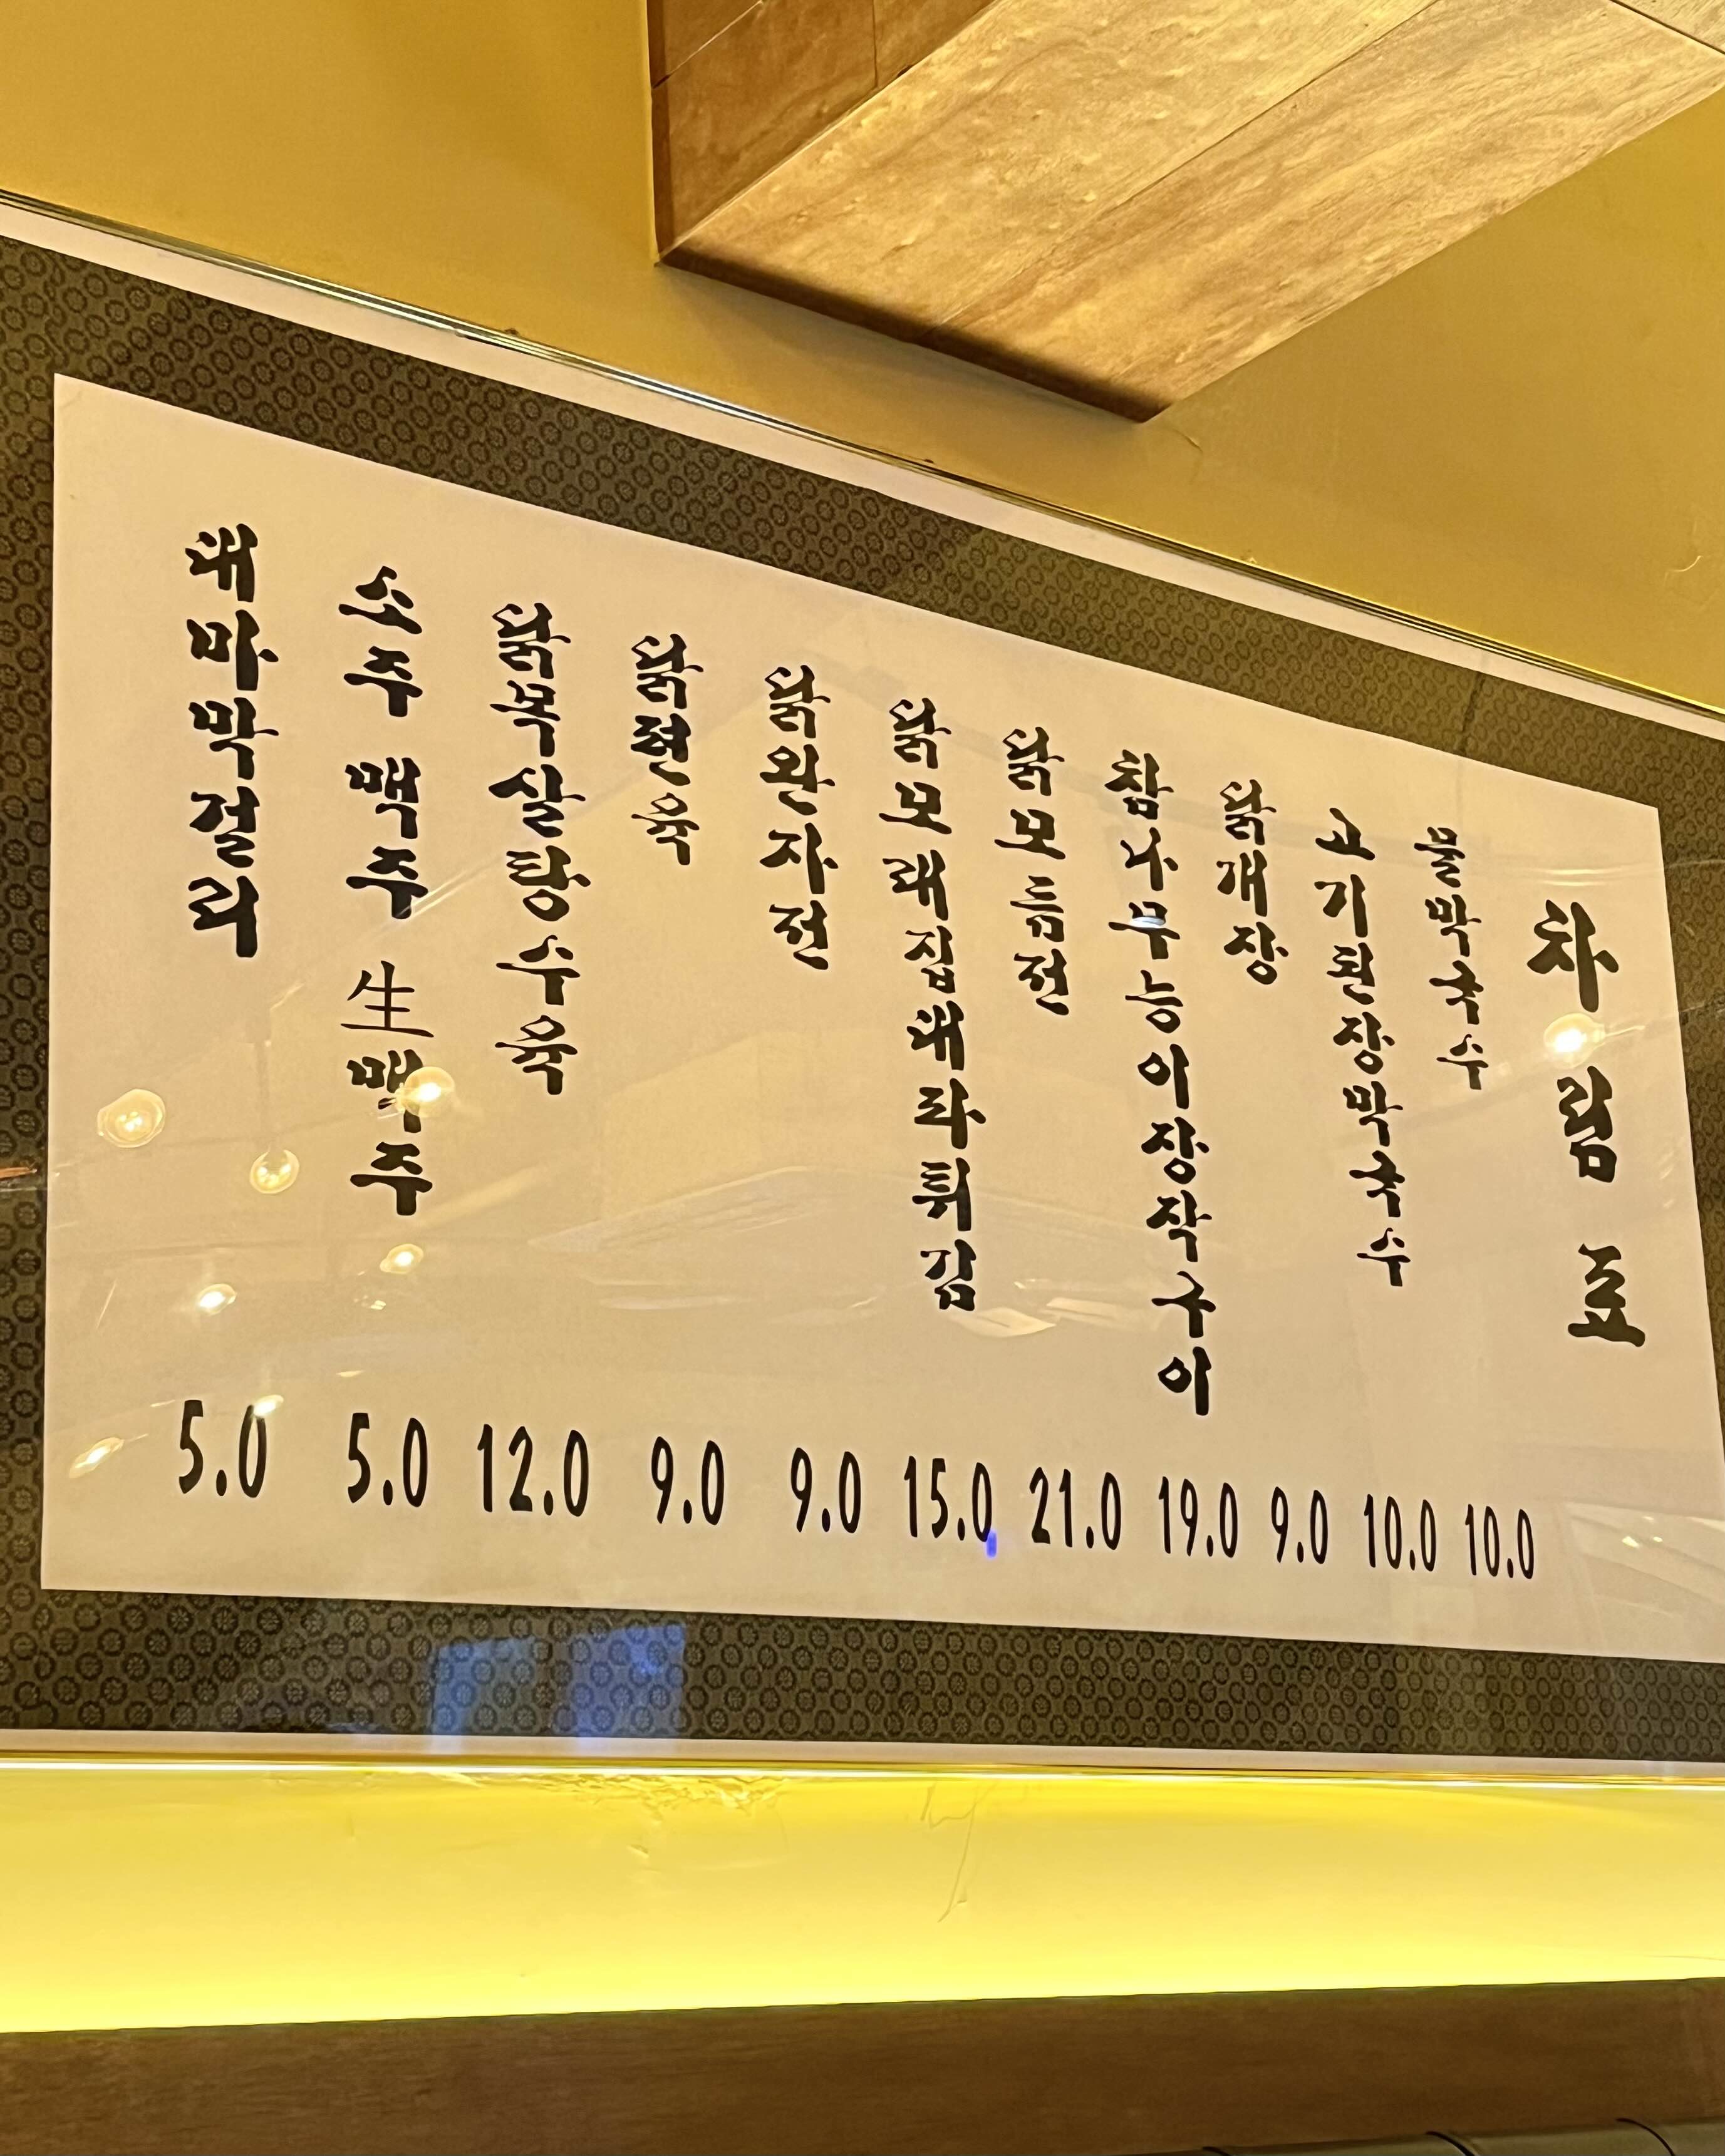 차림표
물막국수 10.0
고기된장막국수 10.0
닭개장 9.0
참나무능이장작구이 19.0
닭모듬전 21.0
닭모래집대파튀김 15.0
닭완자전 9.0
닭편육 9.0
닭목살탕수육 12.0
소주 맥주 生맥주 5.0
대마막걸리 5.0